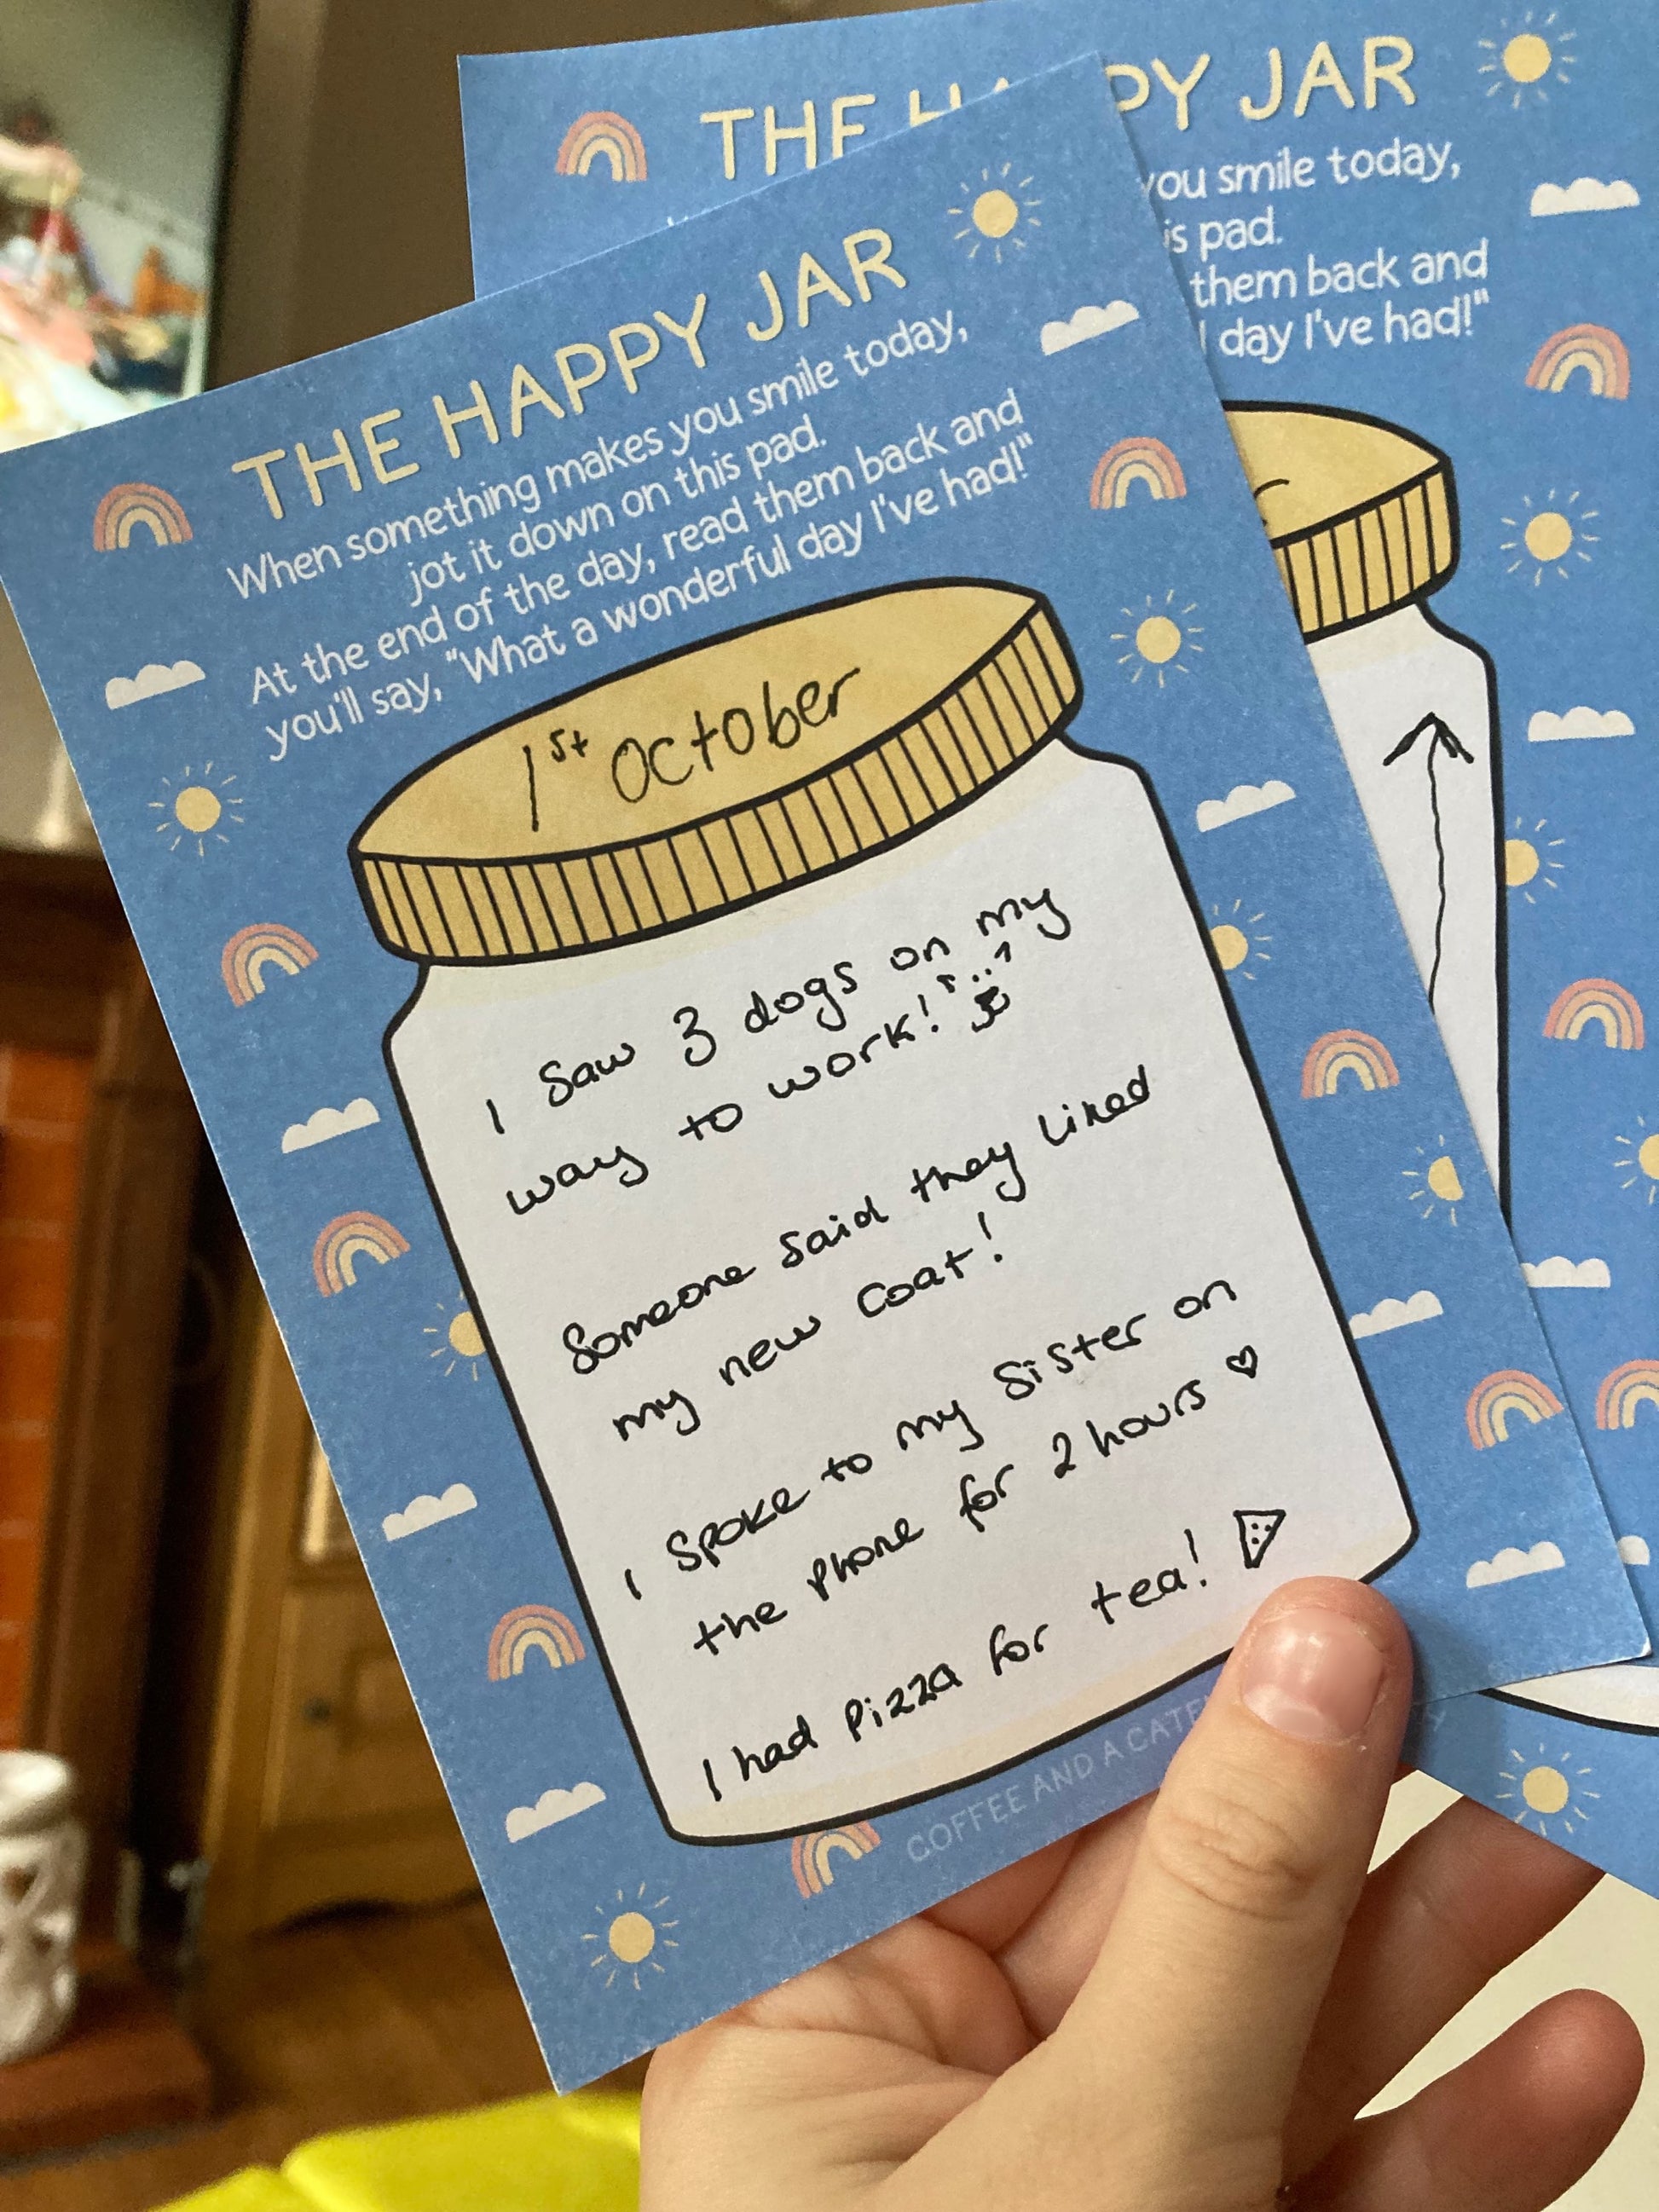 THE HAPPY JAR
When something makes you smile today,
jot it down on this pad.
At the end of the day, read them back and
you'll say, "What a wonderful day I've had!"
1st October
I saw 3 dogs on my
way to work!
Someone said they liked
my new coat!
I spoke to my sister on
the phone for 2 hours ♡
I had pizza for tea!
COFFEE AND A
THE JAR
you smile today,
pad.
them back and
day I've had!"